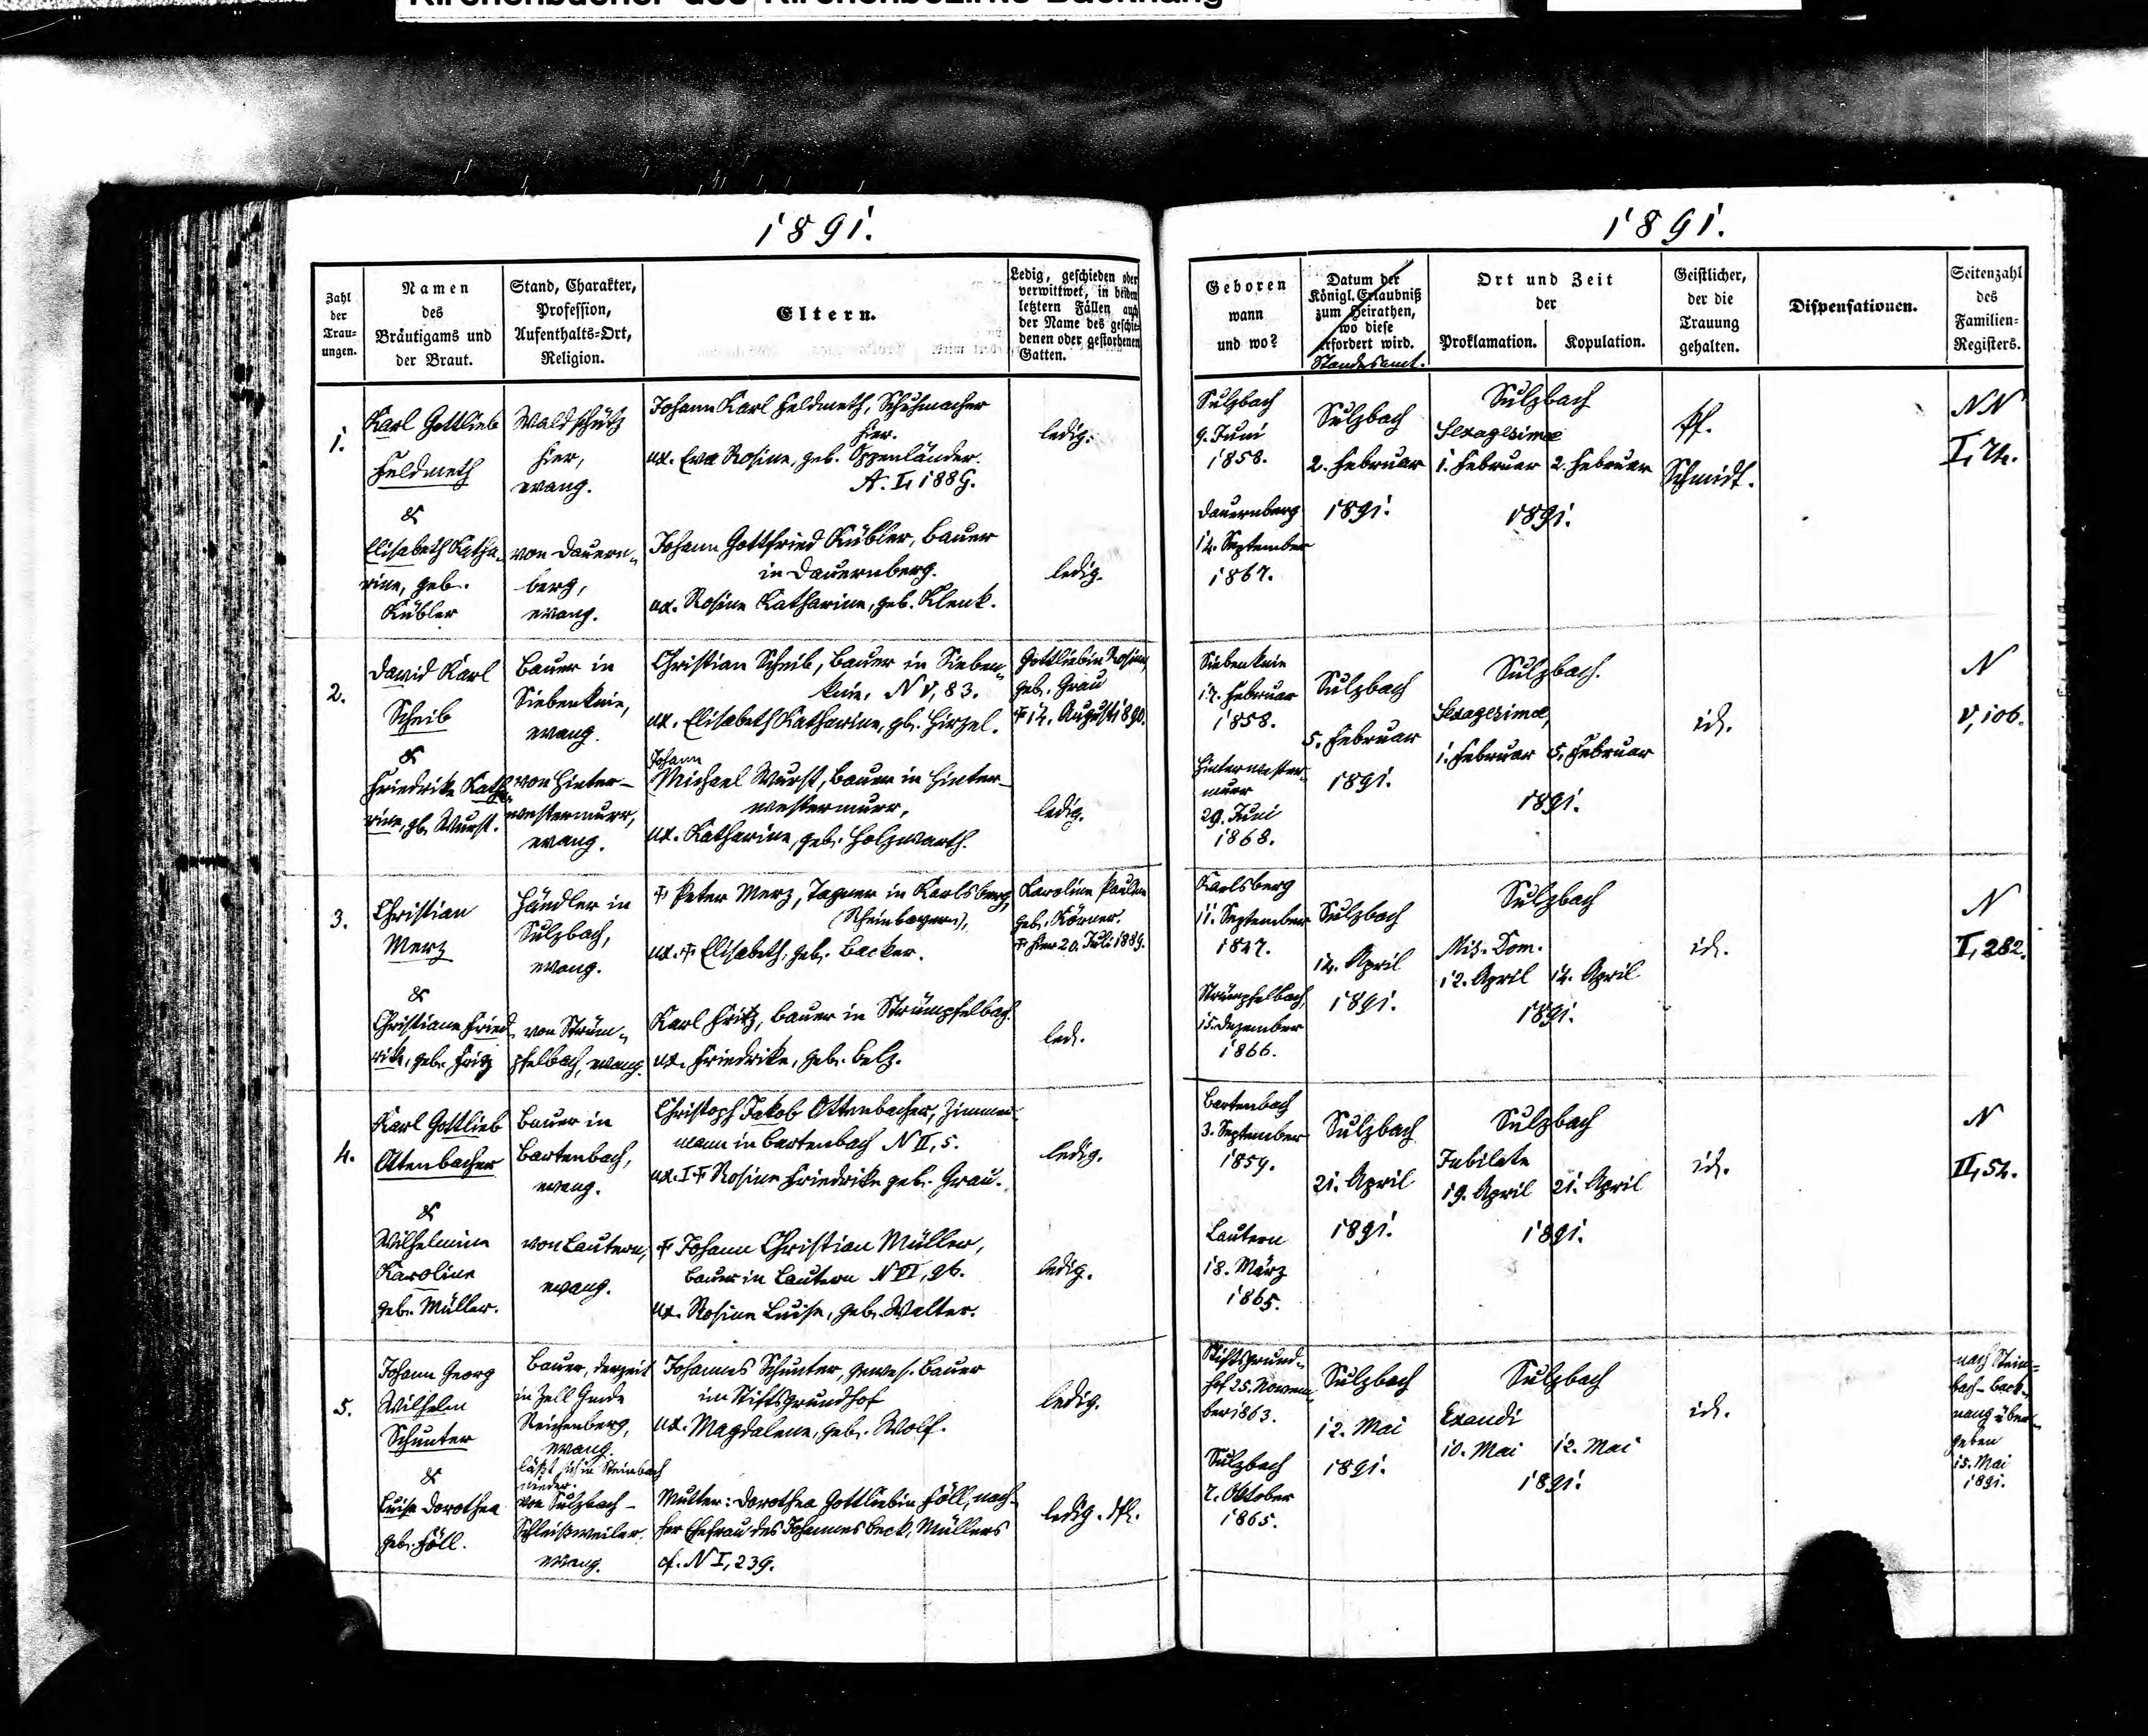 Kirchenbücher des Kirchenbezirks Backnang
1891.
Zahl der Trau-ungen.
Namen des Bräutigams und der Braut.
Stand, Charakter, Profession, Aufenthalts-Ort, Religion.
Eltern.
Ledig, geschieden oder verwittwet, in beiden letztern Fällen auch der Name des geschiedenen oder gestorbenen Gatten.
1.
Karl Gottlieb
Feldmeth
&
Elisabeth Katha-
rine, geb.
Kübler
Waldschütz
hier,
evang.
von Dauern-
berg,
evang.
Johann Karl Feldmeth, Schuhmacher
hier.
ux. Eva Rosine, geb. Oppenländer.
A. I, 188 G.
Johann Gottfried Kübler, Bauer
in Dauernberg.
ux. Rosine Katharine, geb. Klenk.
ledig.
ledig.
2.
David Karl
Scheib
&
Friedrike Katha-
rine, gb. Wurst.
Bauer in
Siebenknie,
evang.
von Hinter-
westermurr,
evang.
Christian Scheib, Bauer in Sieben-
knie. N V, 83.
ux. Elisabeth Katharine, gb. Hirzel.
Johann
Michael Wurst, Bauer in Hinter-
westermurr,
ux. Katharine, geb. Holzwarth.
Gottliebin Rosine,
geb. Grau
† 14. August 1890.
ledig.
3.
Christian
Merz
&
Christiane Fried-
rike, geb. Fritz
Händler in
Sulzbach,
evang.
von Strüm-
pfelbach, evang.
† Peter Merz, Tagner in Karlsberg,
(Rheinbayern),
ux. † Elisabeth, geb. Backer.
Karl Fritz, Bauer in Strümpfelbach.
ux. Friedrike, geb. Belz.
Karoline Pauline
geb. Körner.
† hier 20. Juli 1889.
led.
4.
Karl Gottlieb
Ottenbacher
&
Wilhelmine
Karoline
geb. Müller.
Bauer in
Bartenbach,
evang.
von Lautern,
evang.
Christoph Jakob Ottenbacher, Zimmer-
mann in Bartenbach N II, 5.
ux. I † Rosine Friedrike geb. Grau.
† Johann Christian Müller,
Bauer in Lautern N VI, 96.
ux. Rosine Luise, geb. Walter.
ledig.
ledig.
5.
Johann Georg
Wilhelm
Schunter
&
Luise Dorothea
geb. Föll.
Bauer, derzeit
in Zell Gmde
Reichenberg,
evang.
läßt sich in Steinbach
nieder.
von Sulzbach-
Schleißweiler.
evang.
Johannes Schunter, gewes. Bauer
im Stiftsgrundhof
ux. Magdalene, geb. Wolf.
Mutter: Dorothea Gottliebin Föll, nach-
her Ehefrau des Johannes Beck, Müllers
cf. N I, 239.
ledig.
ledig.
1891.
Geboren wann und wo?
Datum der Königl. Erlaubniß zum Heirathen, wo diese erfordert wird.
Standesamt.
Ort und Zeit der
Proklamation.
Kopulation.
Geistlicher, der die Trauung gehalten.
Dispensationen.
Seitenzahl des Familien-Registers.
Sulzbach
9. Juni
1858.
Dauernberg
14. September
1867.
Sulzbach
2. Februar
1891.
Sulzbach
Sexagesimae
1. Februar 2. Februar
1891.
Pf.
Schmidt.
NN
I, 74.
Siebenknie
17. Februar
1858.
Hinterwester-
murr
29. Juni
1868.
Sulzbach
5. Februar
1891.
Sulzbach.
Sexagesimae,
1. Februar 5. Februar
1891.
id.
N
V, 106.
Karlsberg
11. September
1847.
Strümpfelbach,
15. Dezember
1866.
Sulzbach
14. April
1891.
Sulzbach
Mis. Dom.
12. April 14. April
1891.
id.
N
I, 282.
Bartenbach
3. September
1859.
Lautern
18. März
1865.
Sulzbach
21. April
1891.
Sulzbach
Jubilate
19. April 21. April
1891.
id.
N
II, 54.
Stiftsgrund-
hof 25. Novem-
ber 1863.
Sulzbach
7. Oktober
1865.
Sulzbach
12. Mai
1891.
Sulzbach
Exaudi
10. Mai 12. Mai
1891.
id.
nach Stein-
bach-Back-
nang über-
geben
15. Mai
1891.